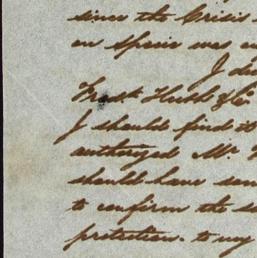 since the Crisis
on Spain was
I
Hushs & Co
I should find it
authorized Mr.
should have
to confirm the
protection to my